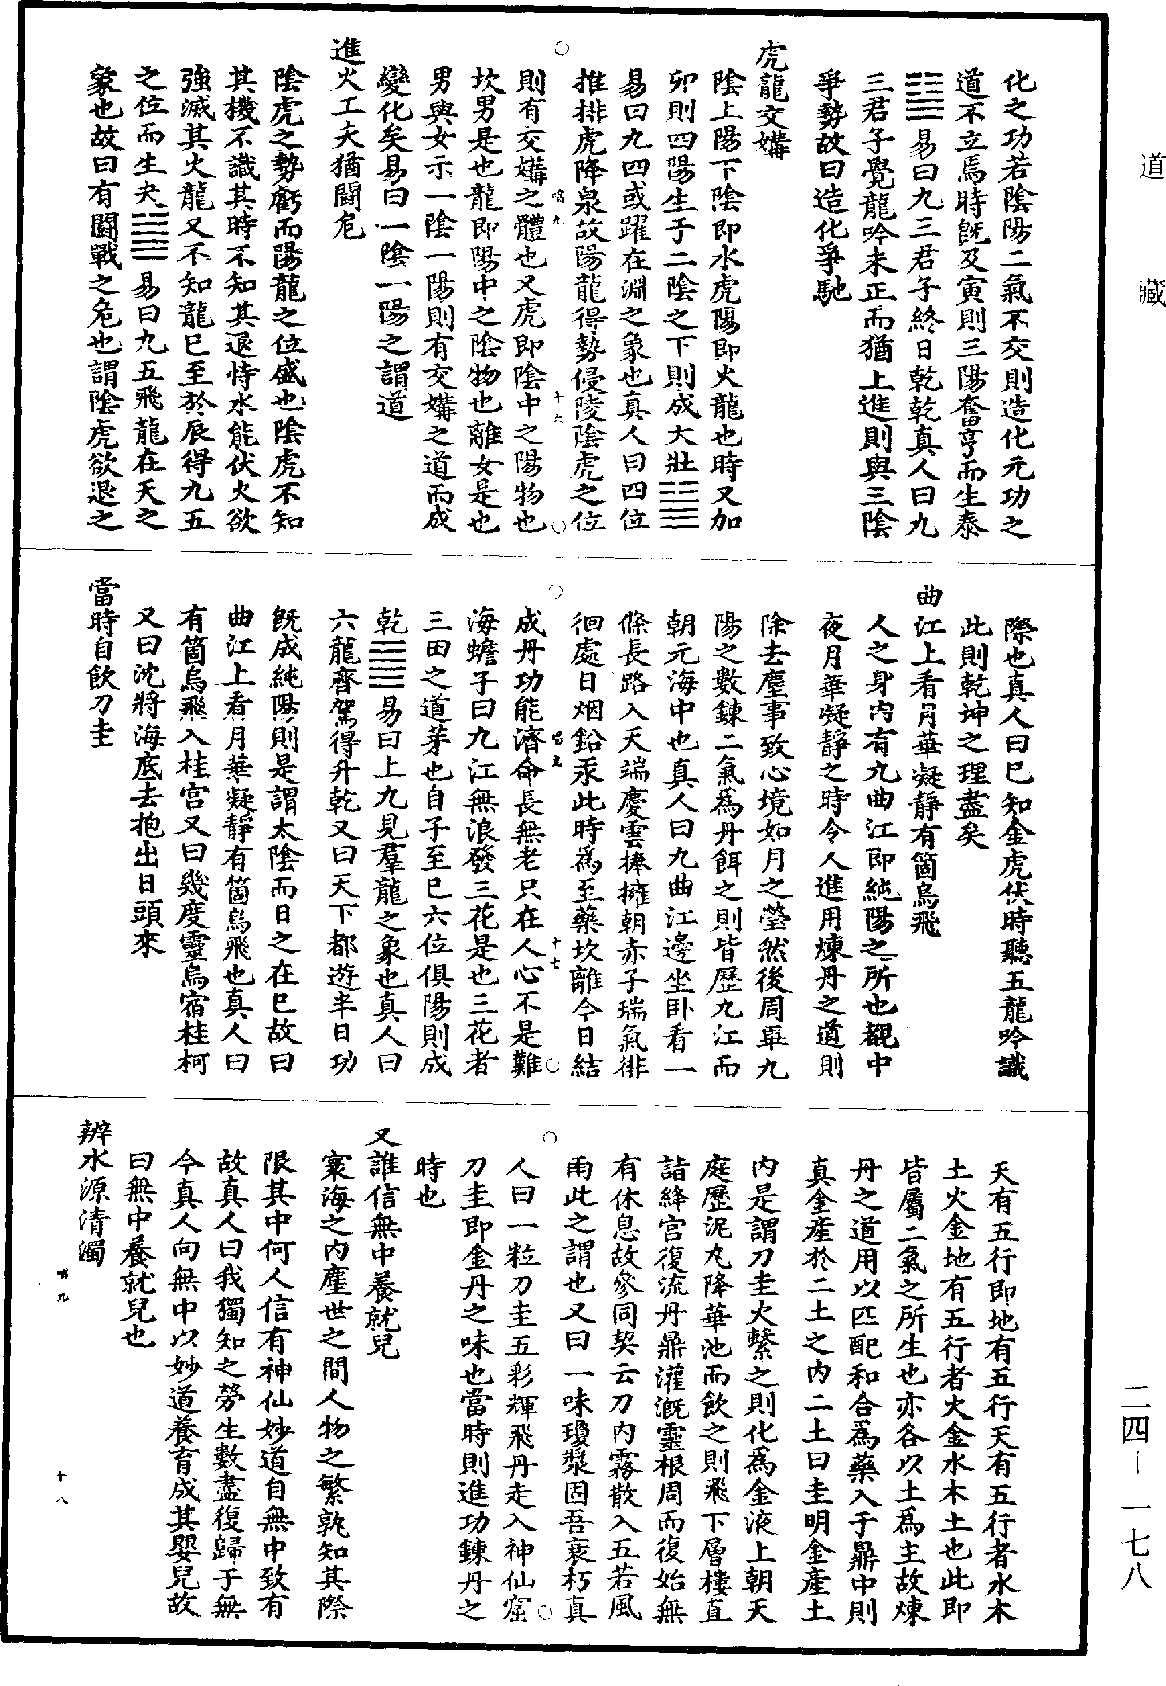 道藏
化之功若陰陽二氣不交則造化元功之
道不立焉時既及寅則三陽奮亨而生泰
䷊易曰九三君子終日乾乾真人曰九
三君子覺龍吟未正而猶上進則與三陰
爭勢故曰造化爭馳
虎龍交媾
陰上陽下陰即水虎陽即火龍也時又加
卯則四陽生于二陰之下則成大壯䷡
易曰九四或躍在淵之象也真人曰四位
推排虎降泉故陽龍得勢侵陵陰虎之位
則有交媾之體也又虎即陰中之陽物也
坎男是也龍即陽中之陰物也離女是也
男與女示一陰一陽則有交媾之道而成
變化矣易曰一陰一陽之謂道
進火工夫猶鬬危
陰虎之勢虧而陽龍之位盛也陰虎不知
其機不識其時不知其退恃水能伏火欲
強滅其火龍又不知龍巳至於辰得九五
之位而生夬䷪易曰九五飛龍在天之
象也故曰有鬬戰之危也謂陰虎欲退之
際也真人曰巳知金虎伏時聽五龍吟識
此則乾坤之理盡矣
曲江上看月華凝靜有箇烏飛
人之身內有九曲江即純陽之所也覩中
夜月華凝靜之時令人進用煉丹之道則
除去塵事致心境如月之瑩然後周畢九
陽之數鍊二氣為丹餌之則皆歷九江而
朝元海中也真人曰九曲江邊坐卧看一
條長路入天端慶雲捧擁朝赤子瑞氣徘
徊處日烟鉛汞此時為至藥坎離今日結
成丹功能濟命長無老只在人心不是難
海蟾子曰九江無浪發三花是也三花者
三田之道芽也自子至巳六位俱陽則成
乾䷀易曰上九見羣龍之象也真人曰
六龍齊駕得升乾又曰天下都遊半日功
既成純陽則是謂太陰而日之在巳故曰
曲江上看月華凝靜有箇烏飛也真人曰
有箇烏飛入桂宮又曰幾度靈烏宿桂柯
又曰沈將海底去抱出日頭來
當時自飲刀圭
天有五行即地有五行天有五行者水木
土火金地有五行者火金水木土也此即
皆屬二氣之所生也亦各以土為主故煉
丹之道用以匹配和合為藥入于鼎中則
真金產於二土之內二土曰圭明金產土
內是謂刀圭火繫之則化為金液上朝天
庭歷泥丸降華池而飲之則飛下層樓直
詣絳宮復流丹鼎灌溉靈根周而復始無
有休息故參同契云刀內霧散入五若風
雨此之謂也又曰一味瓊漿固吾衰朽真
人曰一粒刀圭五彩輝飛丹走入神仙窟
刀圭即金丹之味也當時則進功鍊丹之
時也
又誰信無中養就兒
寰海之內塵世之間人物之繁孰知其際
限其中何人信有神仙妙道自無中致有
故真人曰我獨知之勞生數盡復歸于無
今真人向無中以妙道養育成其嬰兒故
曰無中養就兒也
辨水源清濁
十六
十七
十八
二四—一七八